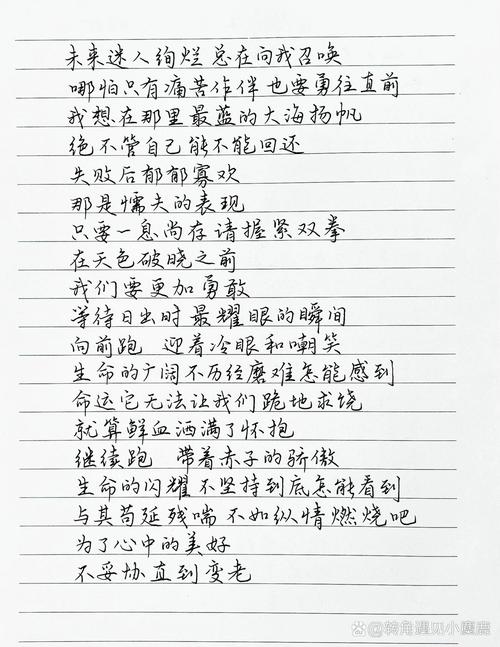 未来迷人绚烂 总在向我召唤
哪怕只有痛苦作伴 也要勇往直前
我想在那里最蓝的大海扬帆
绝不管自己能不能回还
失败后郁郁寡欢
那是懦夫的表现
只要一息尚存请握紧双拳
在天色破晓之前
我们要更加勇敢
等待日出时 最耀眼的瞬间
向前跑 迎着冷眼和嘲笑
生命的广阔不历经磨难怎能感到
命运它无法让我们跪地求饶
就算鲜血洒满了怀抱
继续跑 带着赤子的骄傲
生命的闪耀 不坚持到底怎能看到
与其苟延残喘 不如纵情燃烧吧
为了心中的美好
不妥协直到变老
@转角遇见小麋鹿